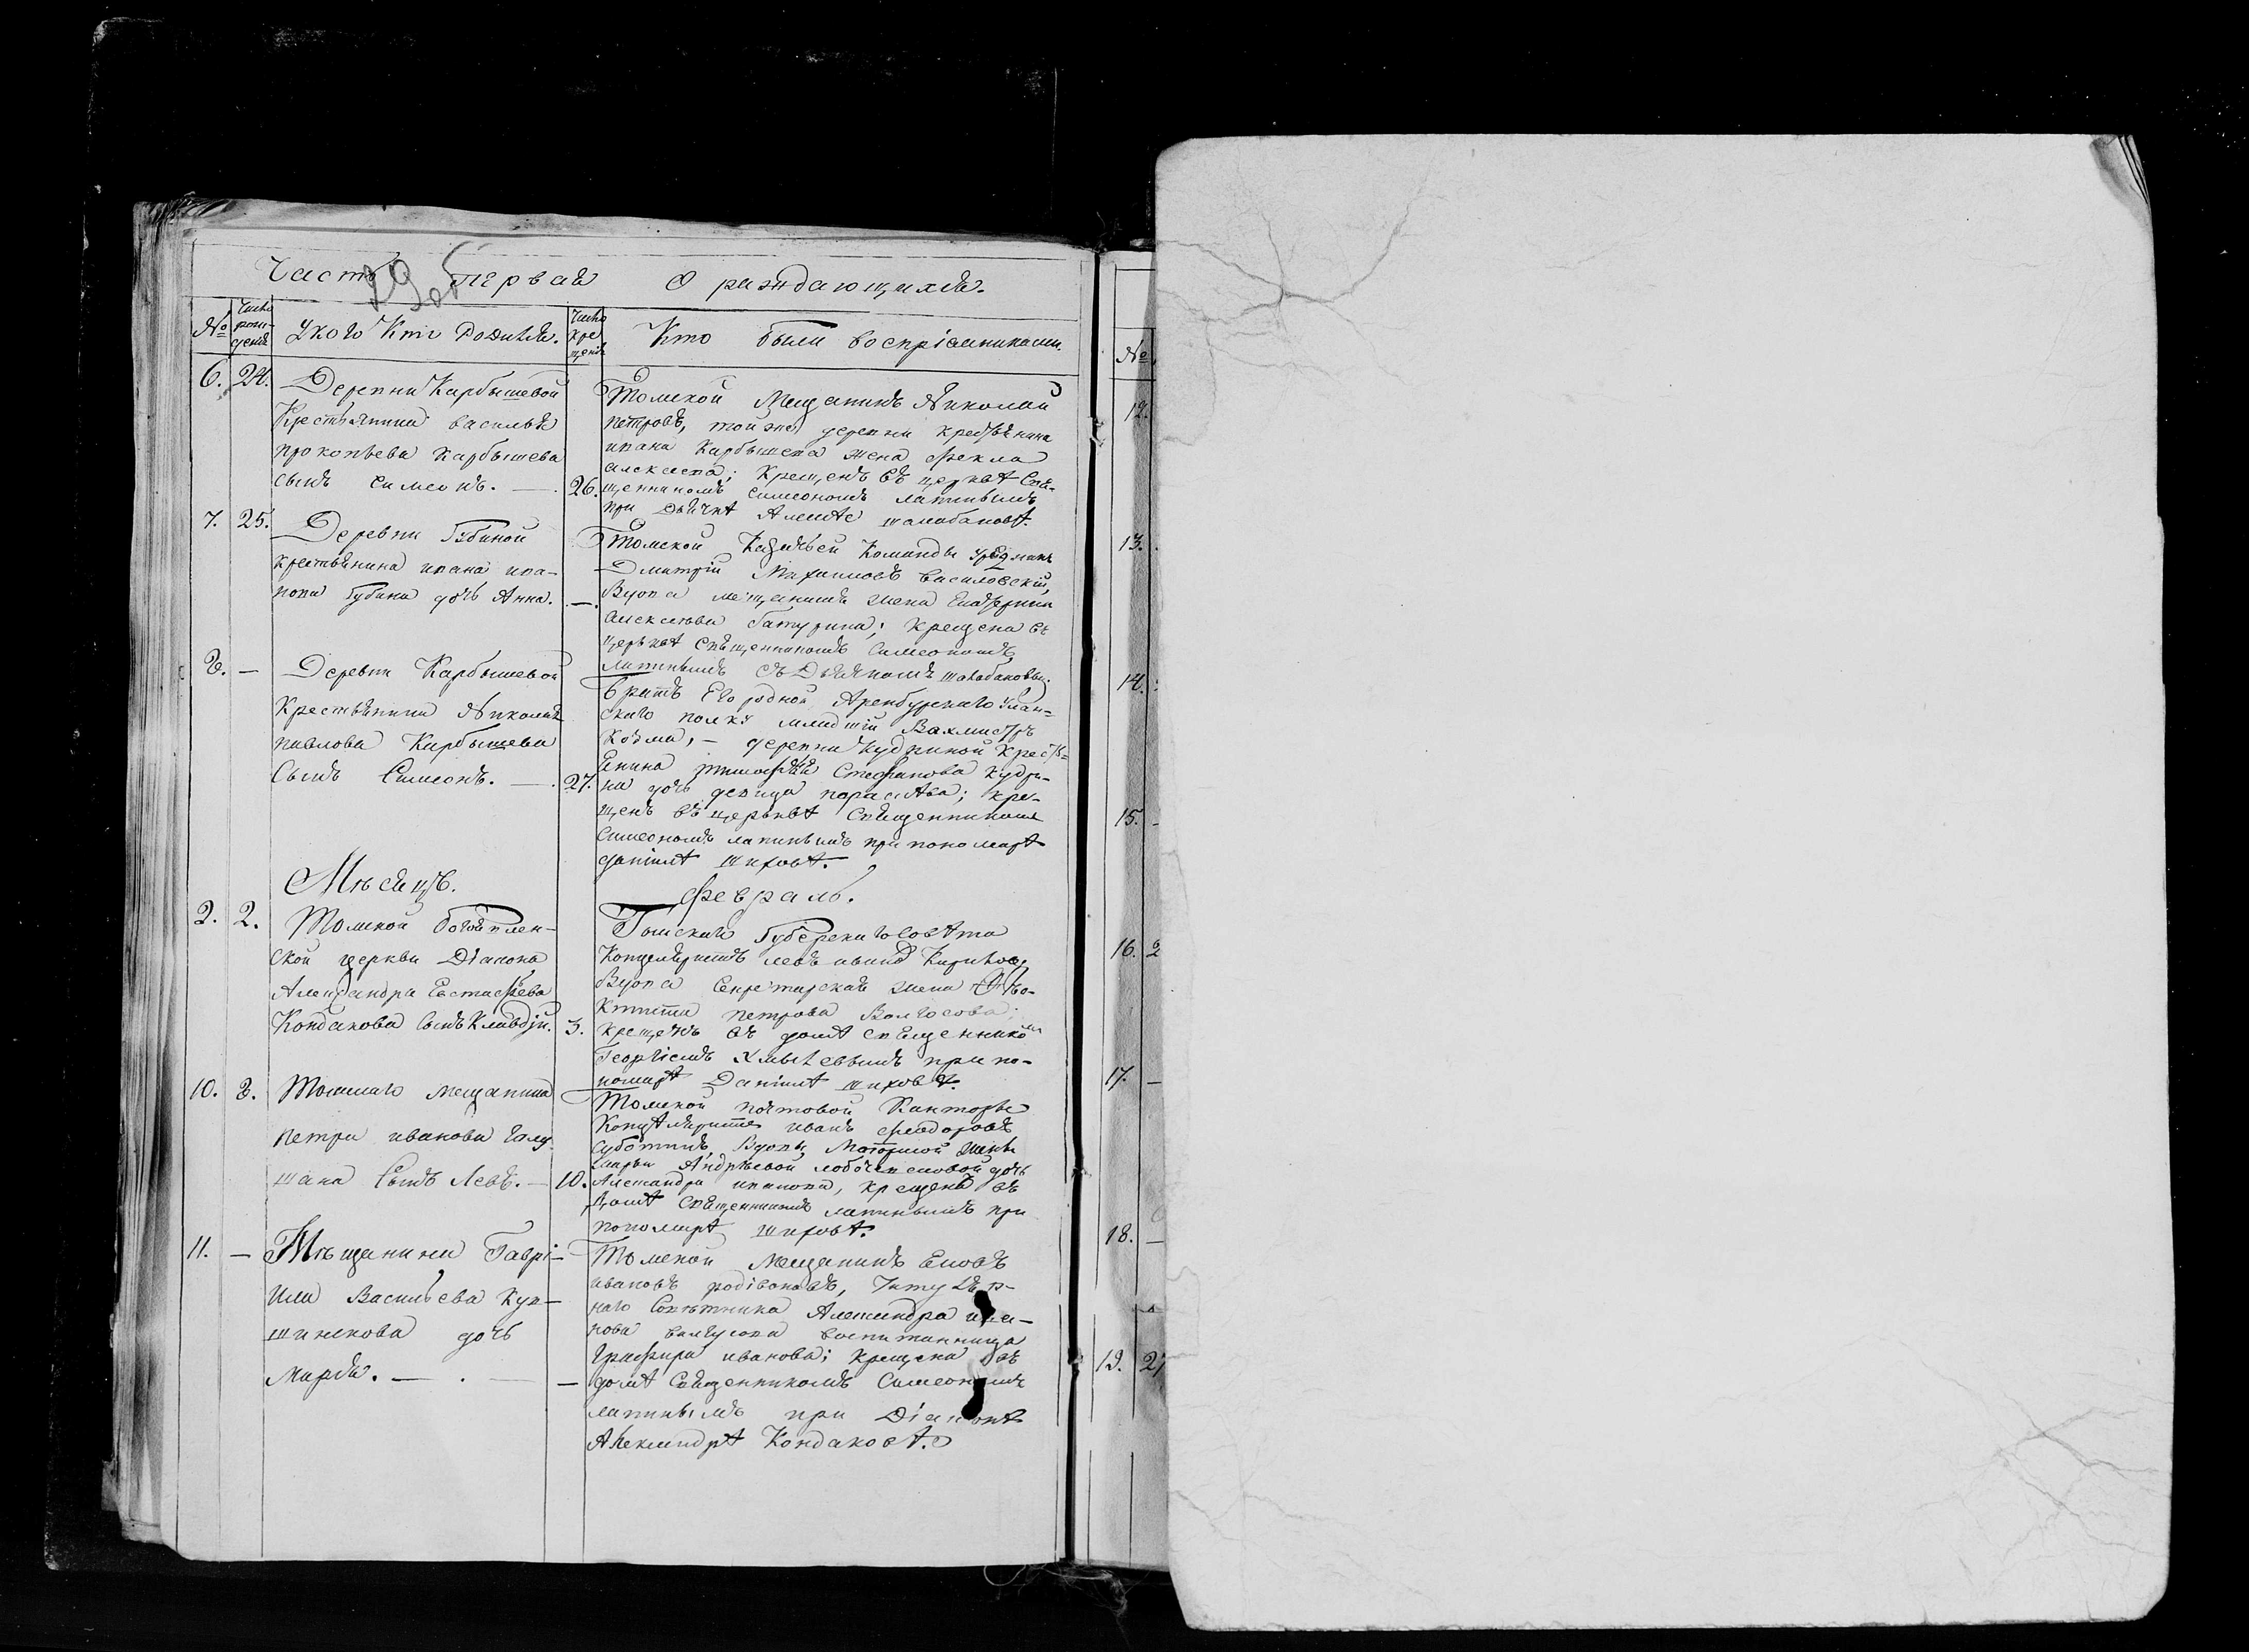 Часть первая О раждающихся.
29 об
№
Число рожденія
У кого Кто Родился.
Число крещенія
Кто были воспріемниками.
6. 24.
Деревни Карбышевой
Крестьянина василья
прокопьева Карбышева
сынъ симеонъ. — 26.
Томской Мещанинъ Николай
петровъ, той же деревни крестьянина
ивана Карбышева жена Фекла
алексеева; Крещенъ въ церквѣ Свя-
щенникомъ симеономъ лапинымъ
при дьячкѣ
7. 25.
Деревни Губиной
крестьянина ивана ива-
нова губина дочь Анна. —
Томской Казачьей Команды урядникъ
Дмитрій Михаиловъ василовскій,
Вдова мещанина жена Екатерина
алексеева батурина; крещена въ
церквѣ священникомъ Симеономъ
лапинымъ съ Дьячкомъ
8. —
Деревни Карбышевой
Крестьянина Николая
павлова Карбышева
Сынъ Симеонъ. — 27.
братъ Его родной Аренбургскаго Улан-
скаго полку младшій Вахмистръ
Козма, — деревни Кудриной Кресть-
янина тимофѣя Стефанова кудри-
на дочь девица параскева; кре-
щенъ въ церьквѣ Священникомъ
Симеономъ лапинымъ при пономарѣ
даніилѣ шиховѣ.
Мѣсяцъ.
Февраль.
9. 2.
Томской богоявлен-
ской церкви Діакона
Александра Евстафьева
Кондакова сынъ Клавдій. 3.
Томскаго Губернскаго совѣта
Канцеляристъ левъ ивановъ
Вдова Секретарская жена
петрова
крещенъ въ домѣ священникомъ
Георгіемъ Хмылевымъ при по-
номарѣ Даніилѣ шиховѣ.
10. 8.
Томскаго мещанина
петра иванова галу-
шана Сынъ Левъ. — 10.
Томской почтовой Канторы
Канцеляристъ иванъ феодоровъ
суботинъ, Вдовы
Андрѣевой дочь
Александра иванова, крещенъ въ
домѣ священникомъ лапинымъ при
пономарѣ шиховѣ.
11. —
Мѣщанина Гаврі-
ила Васильева Кув-
шинскова дочь
Марія. — —
Томской мещанинъ
ивановъ родівоновъ, Титуляр-
наго Совѣтника Александра ива-
нова воспитанница
Глафира иванова; крещена въ
домѣ Священникомъ Симеономъ
лапинымъ при Діаконѣ
Александрѣ Кондаковѣ.
№
12.
13.
14.
15. -
16. 2
17. —
18. —
19. 27